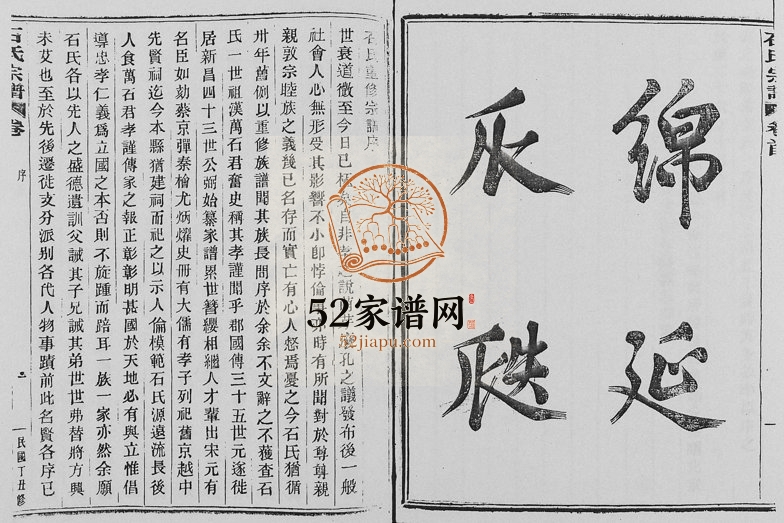 石氏宗譜 卷首
綿延
瓜瓞
石氏重修宗譜序
世衰道微至今日已極自非孝之說孔之議發布後一般
社會人心無形受其影響不小卽悖倫時有所聞對於尊尊親
親敦宗睦族之義幾已名存而實亡有心人怒焉憂之今石氏猶循
卅年舊例以重修族譜聞其族長問序於余余不文辭之不獲查石
氏一世祖漢萬石君奮史稱其孝謹聞乎郡國傳三十五世元遂徙
居新昌四十三世公弼始纂家譜累世簪纓相繼人才輩出宋元有
名臣如劾蔡京彈秦檜尤炳燿史冊有大儒有孝子列祀舊京越中
先賢祠迄今本縣猶建祠而祀之以示人倫模範石氏源遠流長後
人食萬石君孝謹傳家之報正彰彰明甚國於天地必有與立惟倡
導忠孝仁義爲立國之本否則不旋踵而踣耳一族一家亦然余願
石氏各以先人之盛德遺訓父誡其子兄誡其弟世世弗替將方興
未艾也至於先後遷徙支分派別各代人物事蹟前此名賢各序已
石氏宗譜 卷 序 一 民國丁丑修
52家谱网
52jiapu.com